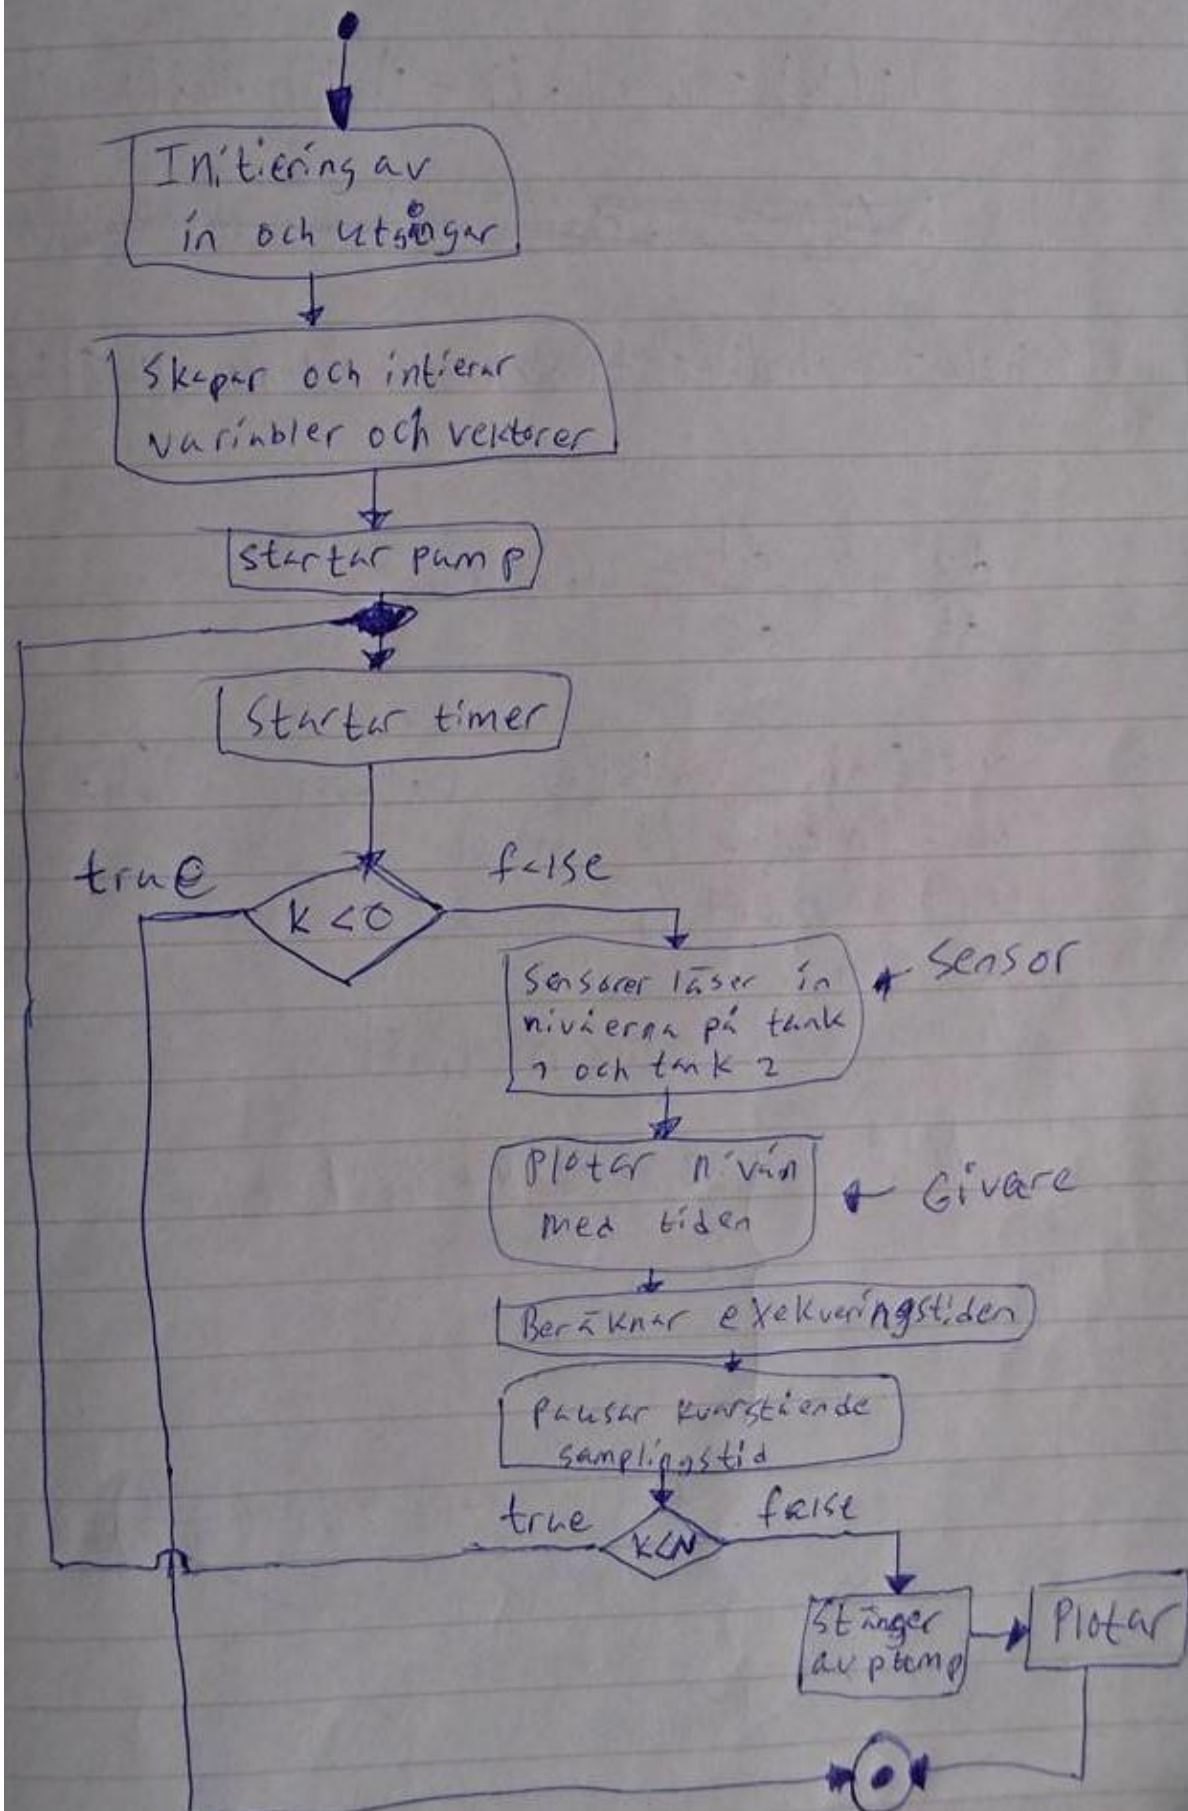 Initiering av
in och utgångar
Skapar och intierar
variabler och vektorer
startar pump
Startar timer
true
false
K<0
Sensorer läser in
nivåerna på tank
1 och tank 2
Sensor
Plotar nivån
med tiden
Givare
Beräknar exekveringstiden
Pausar kvarstående
samplingstid
true
false
K<N
Stänger
av pump
Plotar